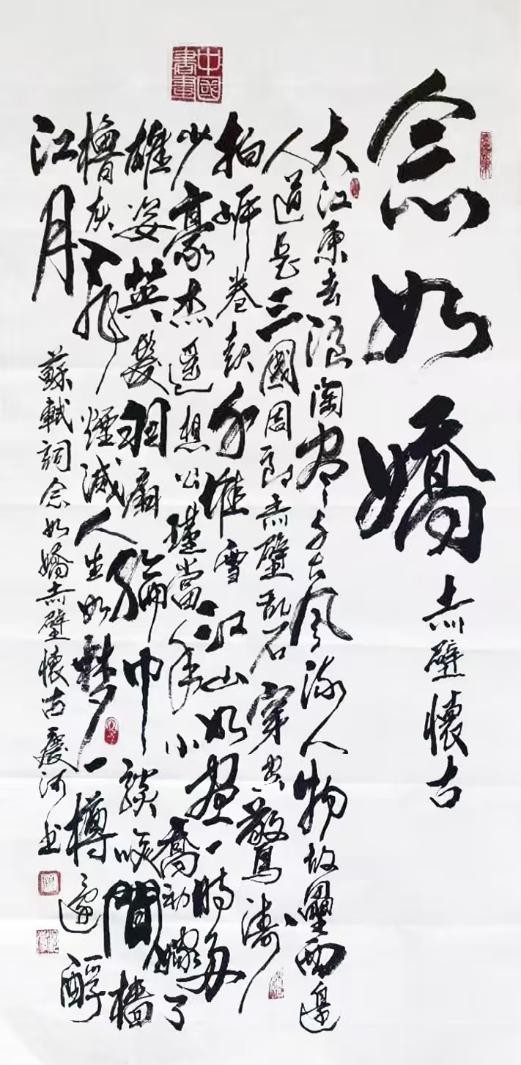 中國書畫
念奴嬌
赤壁懷古
大江東去浪淘尽千古風流人物故壘西邊
人道是三國周郎赤壁乱石穿空驚濤
拍岸卷起千堆雪江山如画一時多
少豪杰遥想公瑾當年小喬初嫁了
雄姿英發羽扇綸巾談笑間檣
櫓灰飛煙滅人生如夢一樽還酹
江月
蘇軾詞念奴嬌赤壁懷古慶河书